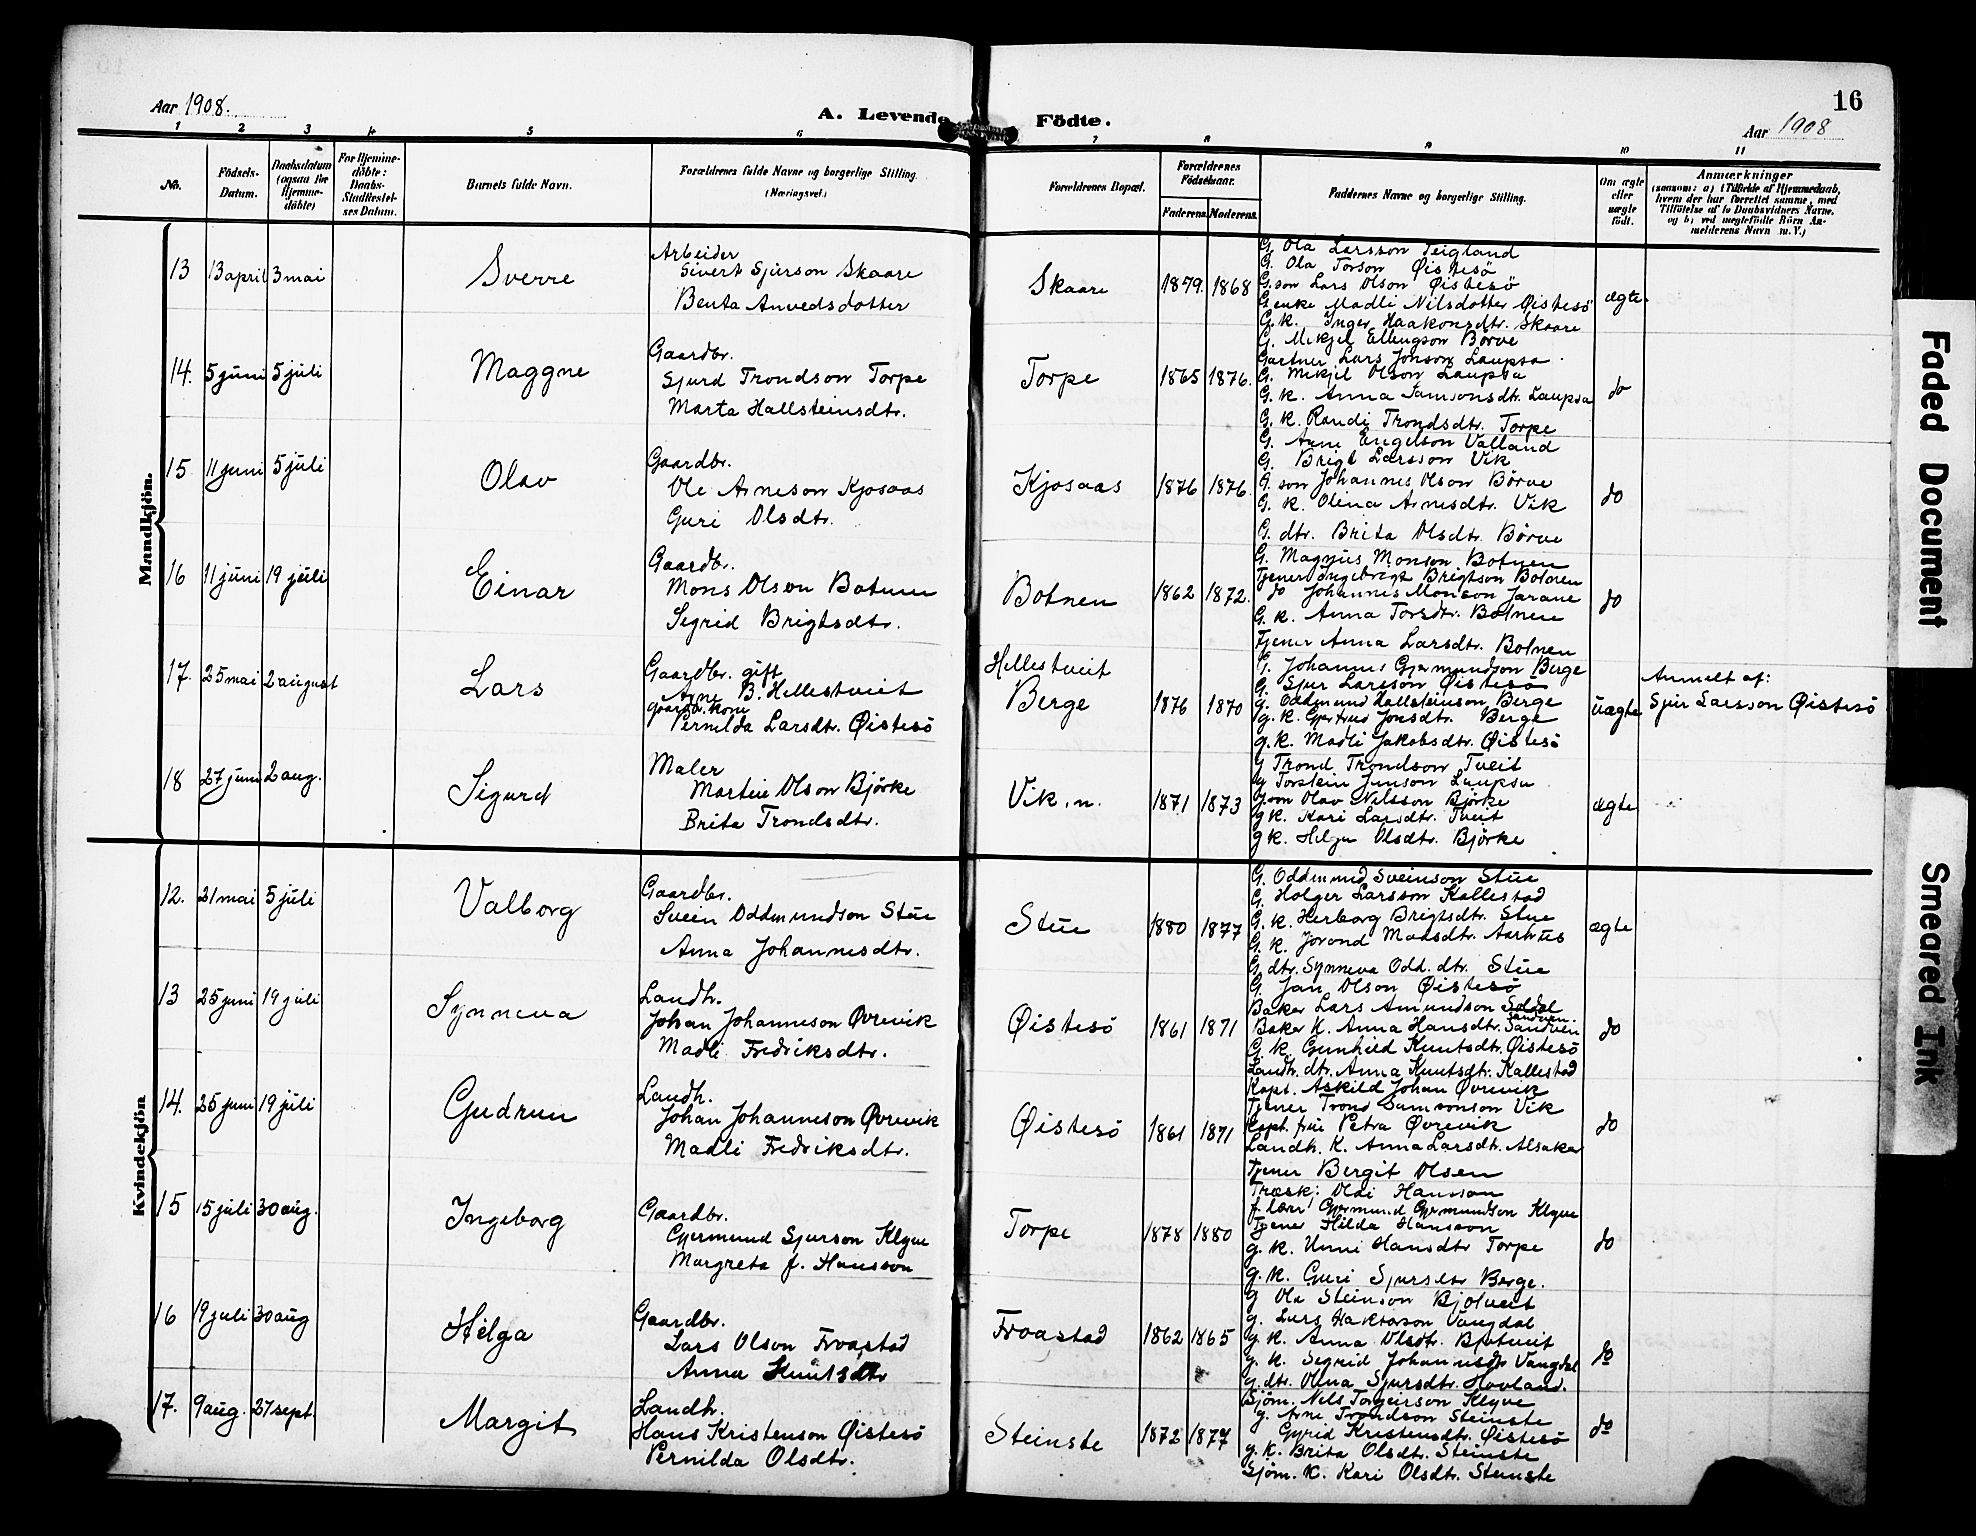 16
Aar 1908.
A. Levende Födte.
Aar 1908
1 2 3 4 5 6 7 8 9 10 11
No.
Födsels-
Datum.
Daabsdatum
(ogsaa for
Hjemme-
döbte)
For Hjemme-
döbte:
Daabs-
Stadfæstel-
ses Datum.
Barnets fulde Navn.
Forældrenes fulde Navne og borgerlige Stilling.
(Næringsvei.)
Forældrenes Bopæl.
Forældrenes
Födselsaar.
Faderens. Moderens.
Faddernes Navne og borgerlige Stilling.
Om ægte
eller
uægte
födt.
Anmærkninger
(saasom: a) i Tilfælde af Hjemmedaab,
hvem der har forrettet samme, med
Tilföielse af to Daabsvidners Navne,
og b) ved uægtefödte Börn An-
melderens Navn m. V.)
Mandkjön.
13 13 april 3 mai Sverre
Arbeider
Sivert Sjurson Skaare
Benta Anvedsdotter
Skaare 1879. 1868
G. Ola Larsson Teigland
G. Ola Torson Øistesö
G. son Lars Olson Øistesö
G. enke Madli Nilsdotter Øistesö
G. k. Inger Haakonsdtr. Skaare
ægte.
14. 5 juni 5 juli Maggne
Gaardbr.
Sjurd Trondson Torpe
Marta Hallsteinsdtr.
Torpe 1865 1876.
G. Mikjel Ellingson Börve
Gartner Lars Jonson Laupsa
G. Mikjel Olson Laupsa
G. k. Anna Samsonsdtr. Laupsa
G. k. Randi Trondsdtr. Torpe
do
15 11 juni 5 juli Olav
Gaardbr.
Ole Arneson Kjosaas
Guri Olsdtr.
Kjosaas 1876 1876.
G. Arne Engelson Valland
G. Brigt Larsson Vik
G. son Johannes Olson Börve
G. k. Olina Arnesdtr. Vik
G. dtr. Brita Olsdtr. Börve
do
16 11 juni 19 juli Einar
Gaardbr.
Mons Olson Botnen
Segrid Brigtsdtr.
Botnen 1862 1872.
G. Magnus Monson Botnen
Tjener Ingebrigt Brigtson Botnen
do Johannes Monson Jarane
G. k. Anna Torsdtr. Botnen
Tjener Anna Larsdtr. Botnen
do
17. 25 mai 2 august Lars
Gaardbr. gift
Arne B. Hellestveit
gaardb. kone
Pernilda Larsdtr. Øistesö
Hellestveit
Berge 1876 1870
G. Johannes Gjermundson Berge
G. Sjur Larsson Øistesö
g. Oddmund Hallsteinson Berge
g. k. Gjertrud Jonsdtr. Berge
g. k. Madli Jakobsdtr. Øistesö
uægte
Anmelt af:
Sjur Larsson Øistesö
18 27 juni 2 aug. Sigurd
Maler
Martin Olson Björke
Brita Trondsdtr.
Vik. n. 1871 1873
g Trond Trondson Tveit
g Torstein Jonson Laupsa
g. son Olav Nilsson Björke
g k. Kari Larsdtr. Tveit
g k. Helga Olsdtr. Björke
ægte
Kvindekjön
12. 21 mai 5 juli Valborg
Gaardbr.
Svein Oddmundson Stue
Anna Johannesdtr.
Stue 1880 1877
G. Oddmund Sveinson Stue
G. Holger Larsson Kallestad
G. k. Herborg Brigtsdtr. Stue
G. k. Jorond Madsdtr. Aarhus
G. dtr. Synneva Odd. dtr. Stue
ægte
13 25 juni 19 juli Synneva
Landh.
Johan Johanneson Øvrevik
Madli Fredriksdtr.
Øistesö 1861 1871
G. Jan Olson Øistesö
Baker Lars Amundson Soldal
Sandven.
Baker K. Anna Hansdtr. Sandven
G. k. Gunhild Knutsdtr. Øistesö
Landh. dtr. Anna Knutsdtr. Kallestad
do
14. 25 juni 19 juli Gudrun
Landh.
Johan Johanneson Øvrevik
Madli Fredriksdtr.
Øistesö 1861 1871
Kapt. Askild Johan Øvrevik
Tjener Trond Samsonson Vik
Kapt. frue Petra Øvrevik
Landh. K. Anna Larsdtr. Alsaker
Tjener Bergit Olsen
do
15 15 juli 30 aug. Ingeborg
Gaardbr.
Gjermund Sjurson Klyve
Margreta f. Hansson
Torpe 1878 1880
Træsk: Hansson
f. lærer Gjermund Gjermundson Klyve
Tjener Hilda Hansson
g. k. Unni Hansdtr Torpe
g. k. Guri Sjursdtr Berge.
do
16 19 juli 30 aug Helga
Gaardbr.
Lars Olson Froastad
Anna Knutsdtr
Froastad 1862 1865
g Ola Steinson Bjotveit
g. Lars Haktorson Vangdal
g. k. Anna Olsdtr. Bjotveit
g. k. Segrid Johannesdtr Vangdal
g. dtr. Olina Sjursdtr. Hovland.
do
17. 9 aug. 27 sept. Margit
Landh.
Hans Kristenson Øistesö
Pernilda Olsdtr.
Steinstø 1872 1877
Sjöm. Nils Torgeirson Klyve
g. Arne Trondson Steinstø
Gyrid Kristensdtr. Øistesö
g. k. Brita Olsdtr. Steinstø
Sjöm. K. Kari Olsdtr. Steinstø
do
Faded Document
Smeared Ink